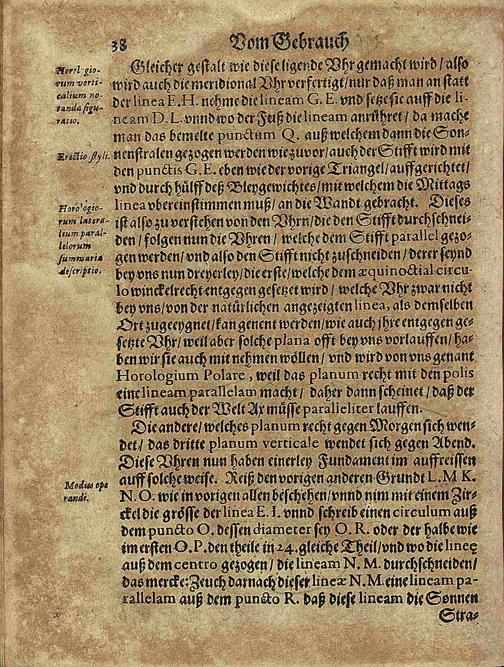 38
Vom Gebrauch
Gleicher gestalt wie diese ligende Vhr gemacht wird/ also
wird auch die meridional Vhr verfertigt/ nur daß man an statt
der linea F. H. nehme die lineam G. E. vnd setze sie auff die li-
neam D. L. vnnd wo der Fuß die lineam anrühret/ da mache
man das bemelte punctum Q. auß welchem dann die Son-
nenstralen gezogen werden wie zuvor/ auch der Stifft wird mit
den punctis G. E. eben wie der vorige Triangel/ auffgerichtet/
vnd durch hülff deß Bleygewichtes/ mit welchem die Mittags
linea vbereinstimmen muß/ an die Wandt gebracht. Dieses
ist also zu verstehen von den Vhrn/ die den Stifft durchschnei-
den/ folgen nun die Vhren/ welche dem Stifft parallel gezo-
gen werden/ vnd also den Stifft nicht zuschneiden/ derer seynd
bey vns nun dreyerley/ die erste/ welche dem æquinoctial circu-
lo winckelrecht entgegen gesetzt wird/ welche Vhr zwar nicht
bey vns/ von der natürlichen angezeigten linea, als demselben
Ort zugeeygnet/ kan genent werden/ wie auch jhre entgegen ge-
setzte Vhr/ weil aber solche plana offt bey vns vorlauffen/ ha-
ben wir sie auch mit nehmen wöllen/ vnd wird von vns genant
Horologium Polare, weil das planum recht mit den polis
eine lineam parallelam macht/ daher dann scheinet/ daß der
Stifft auch der Welt Ax müsse paralleliter lauffen.
Die andere/ welches planum recht gegen Morgen sich wen-
det/ das dritte planum verticale wendet sich gegen Abend.
Diese Vhren nun haben einerley Fundament im auffreissen
auff solche weise. Reiß den vorigen anderen Grundt L. M K.
N. O. wie in vorigen allen beschehen/ vnnd nim mit einem Zir-
ckel die grösse der linea E. I. vnnd schreib einen circulum auß
dem puncto O. dessen diameter sey O. R. oder der halbe wie
im ersten O. P. den theile in 24. gleiche Theil/ vnd wo die lineę
auß dem centro gezogen/ die lineam N. M. durchschneiden/
das mercke: Zeuch darnach dieser lineæ N. M. eine lineam pa-
rallelam auß dem puncto R. daß diese lineam die Sonnen
Stra-
rum verti-
calium no-
tanda figu-
ratio.
Erectio styli.
Horologio-
rum latera-
lium paral-
lelorum
summaria
descriptio.
Modus ope
randi.